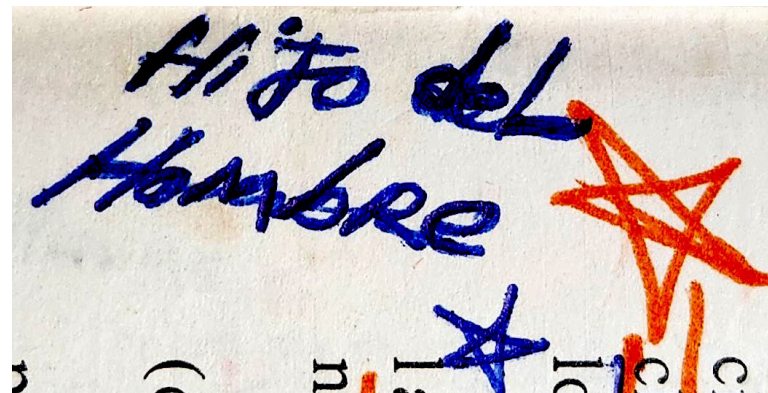 Hijo del
Hombre